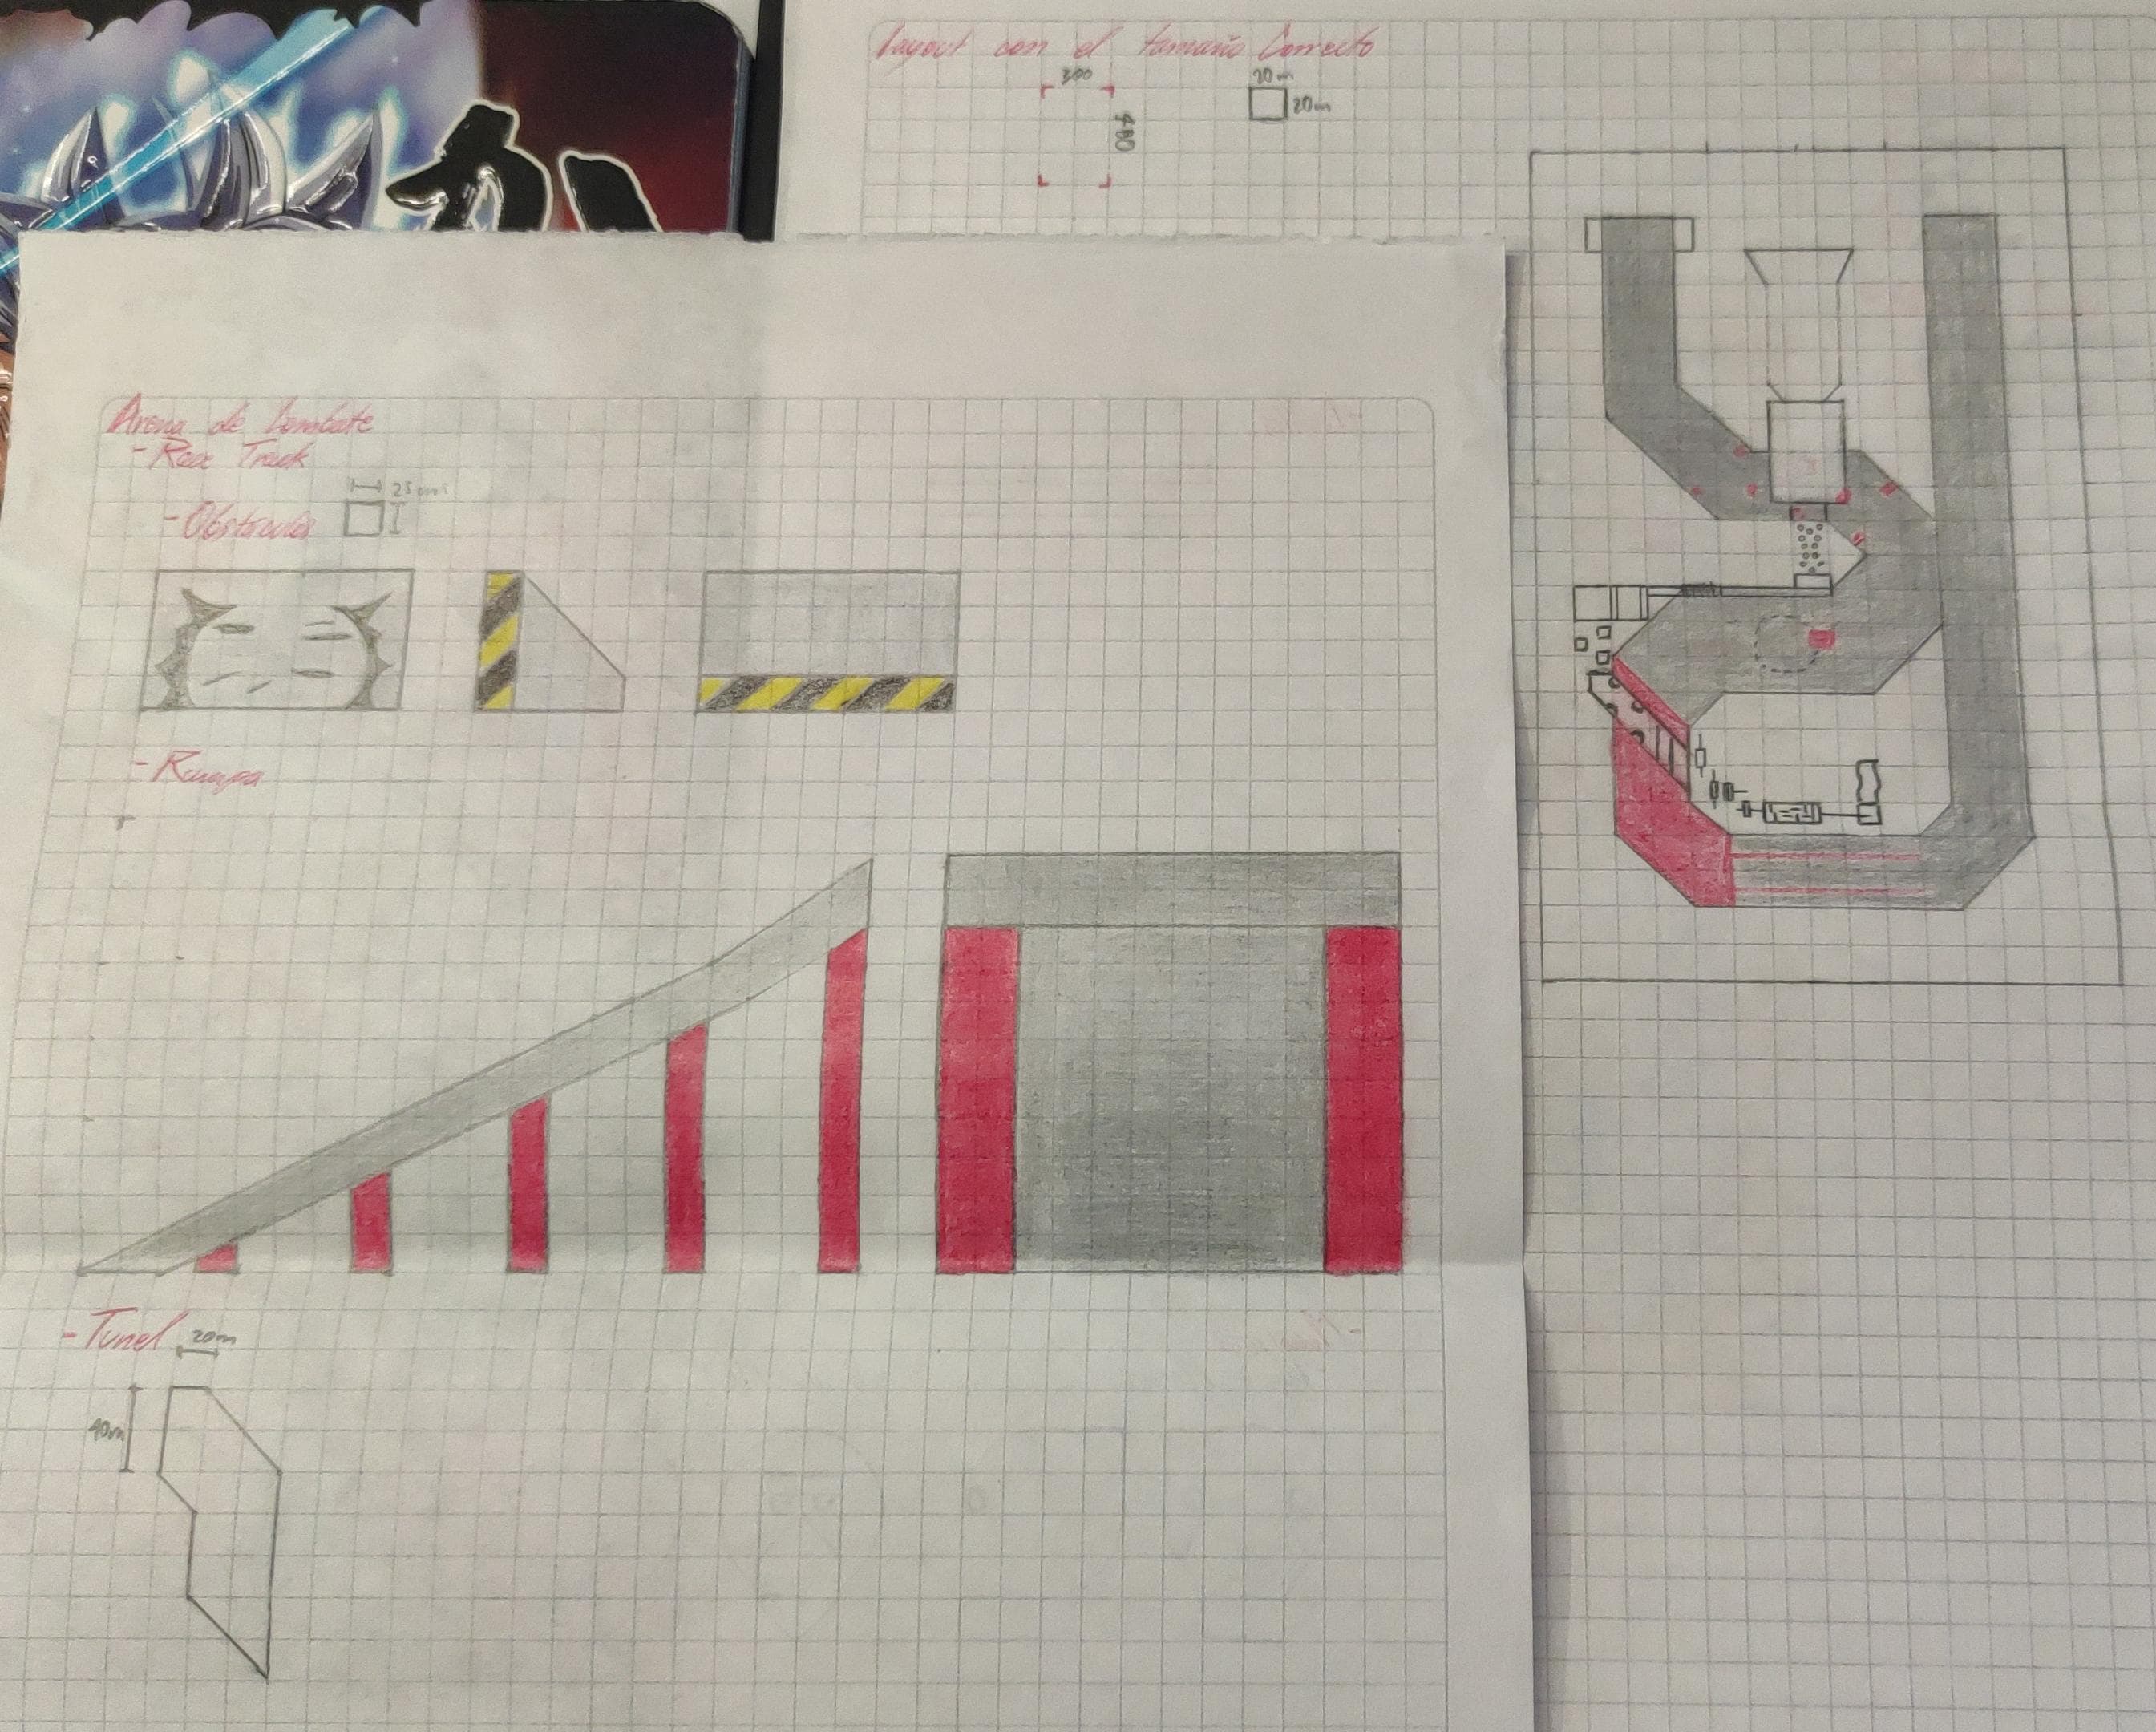 Layout con el tamaño Correcto
300
480
20m
20m
Arena de Combate
- Race Track
- Obstaculos
- Rampa
- Tunel
20m
40m